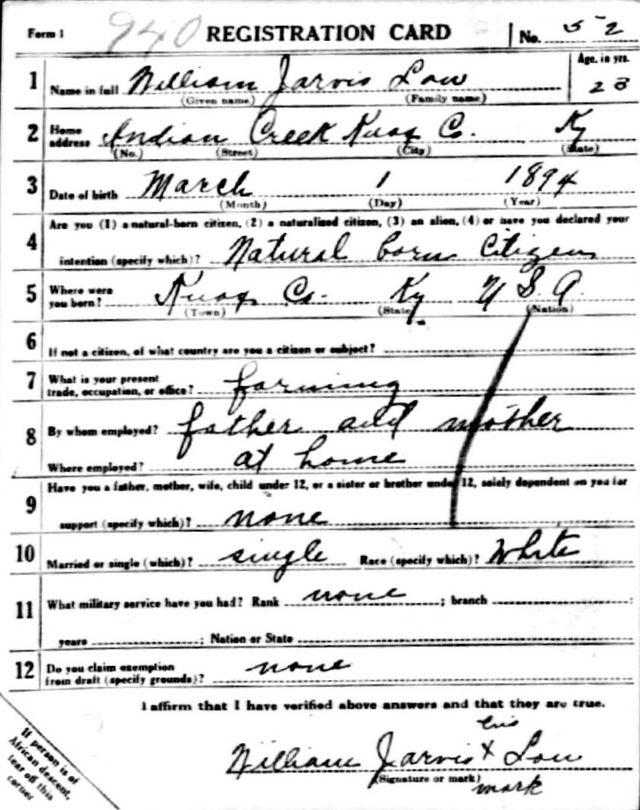 Form 1 940 REGISTRATION CARD No. 52
1 Name in full William Jarvis Law Age, in yrs. 23
(Given name) (Family name)
2 Home address Indian Creek Knox Co. Ky
(No.) (Street) (City) (State)
3 Date of birth March 1 1894
(Month) (Day) (Year)
4 Are you (1) a natural-born citizen, (2) a naturalized citizen, (3) an alien, (4) or have you declared your
intention (specify which)? Natural born Citizen
5 Where were you born? Knox Co. Ky U S A
(Town) (State) (Nation)
6 If not a citizen, of what country are you a citizen or subject?
7 What is your present trade, occupation, or office? farming
8 By whom employed? father and mother
Where employed? at home
9 Have you a father, mother, wife, child under 12, or a sister or brother under 12, solely dependent on you for
support (specify which)? none
10 Married or single (which)? single Race (specify which)? White
11 What military service have you had? Rank none ; branch ;
years ; Nation or State
12 Do you claim exemption from draft (specify grounds)? none
I affirm that I have verified above answers and that they are true.
his
William Jarvis x Law
(Signature or mark) mark
If person is of
African descent,
tear off this
corner